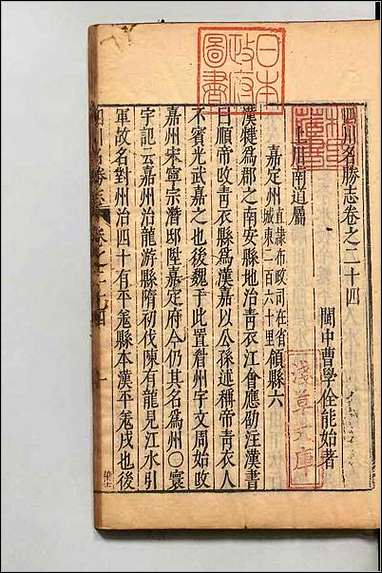 四川名勝志卷之二十四
閩中曹學佺能始著
上川南道屬
嘉定州直隷布政司在省城東二百六十里領縣六
漢犍爲郡之南安縣地治青衣江會應劭注漢書
曰順帝改青衣縣爲漢嘉以公孫述稱帝青衣人
不賓光武嘉之也後魏于此置眉州宇文周始改
嘉州宋寧宗潛邸陞嘉定府今仍其名爲州〇寰
宇記云嘉州治龍游縣隋初伐陳有龍見江水引
軍故名對州治四十有平羗縣本漢平羗戍也後
四川名勝志 卷之二十四 一
日本
政府
圖書
淺草文庫